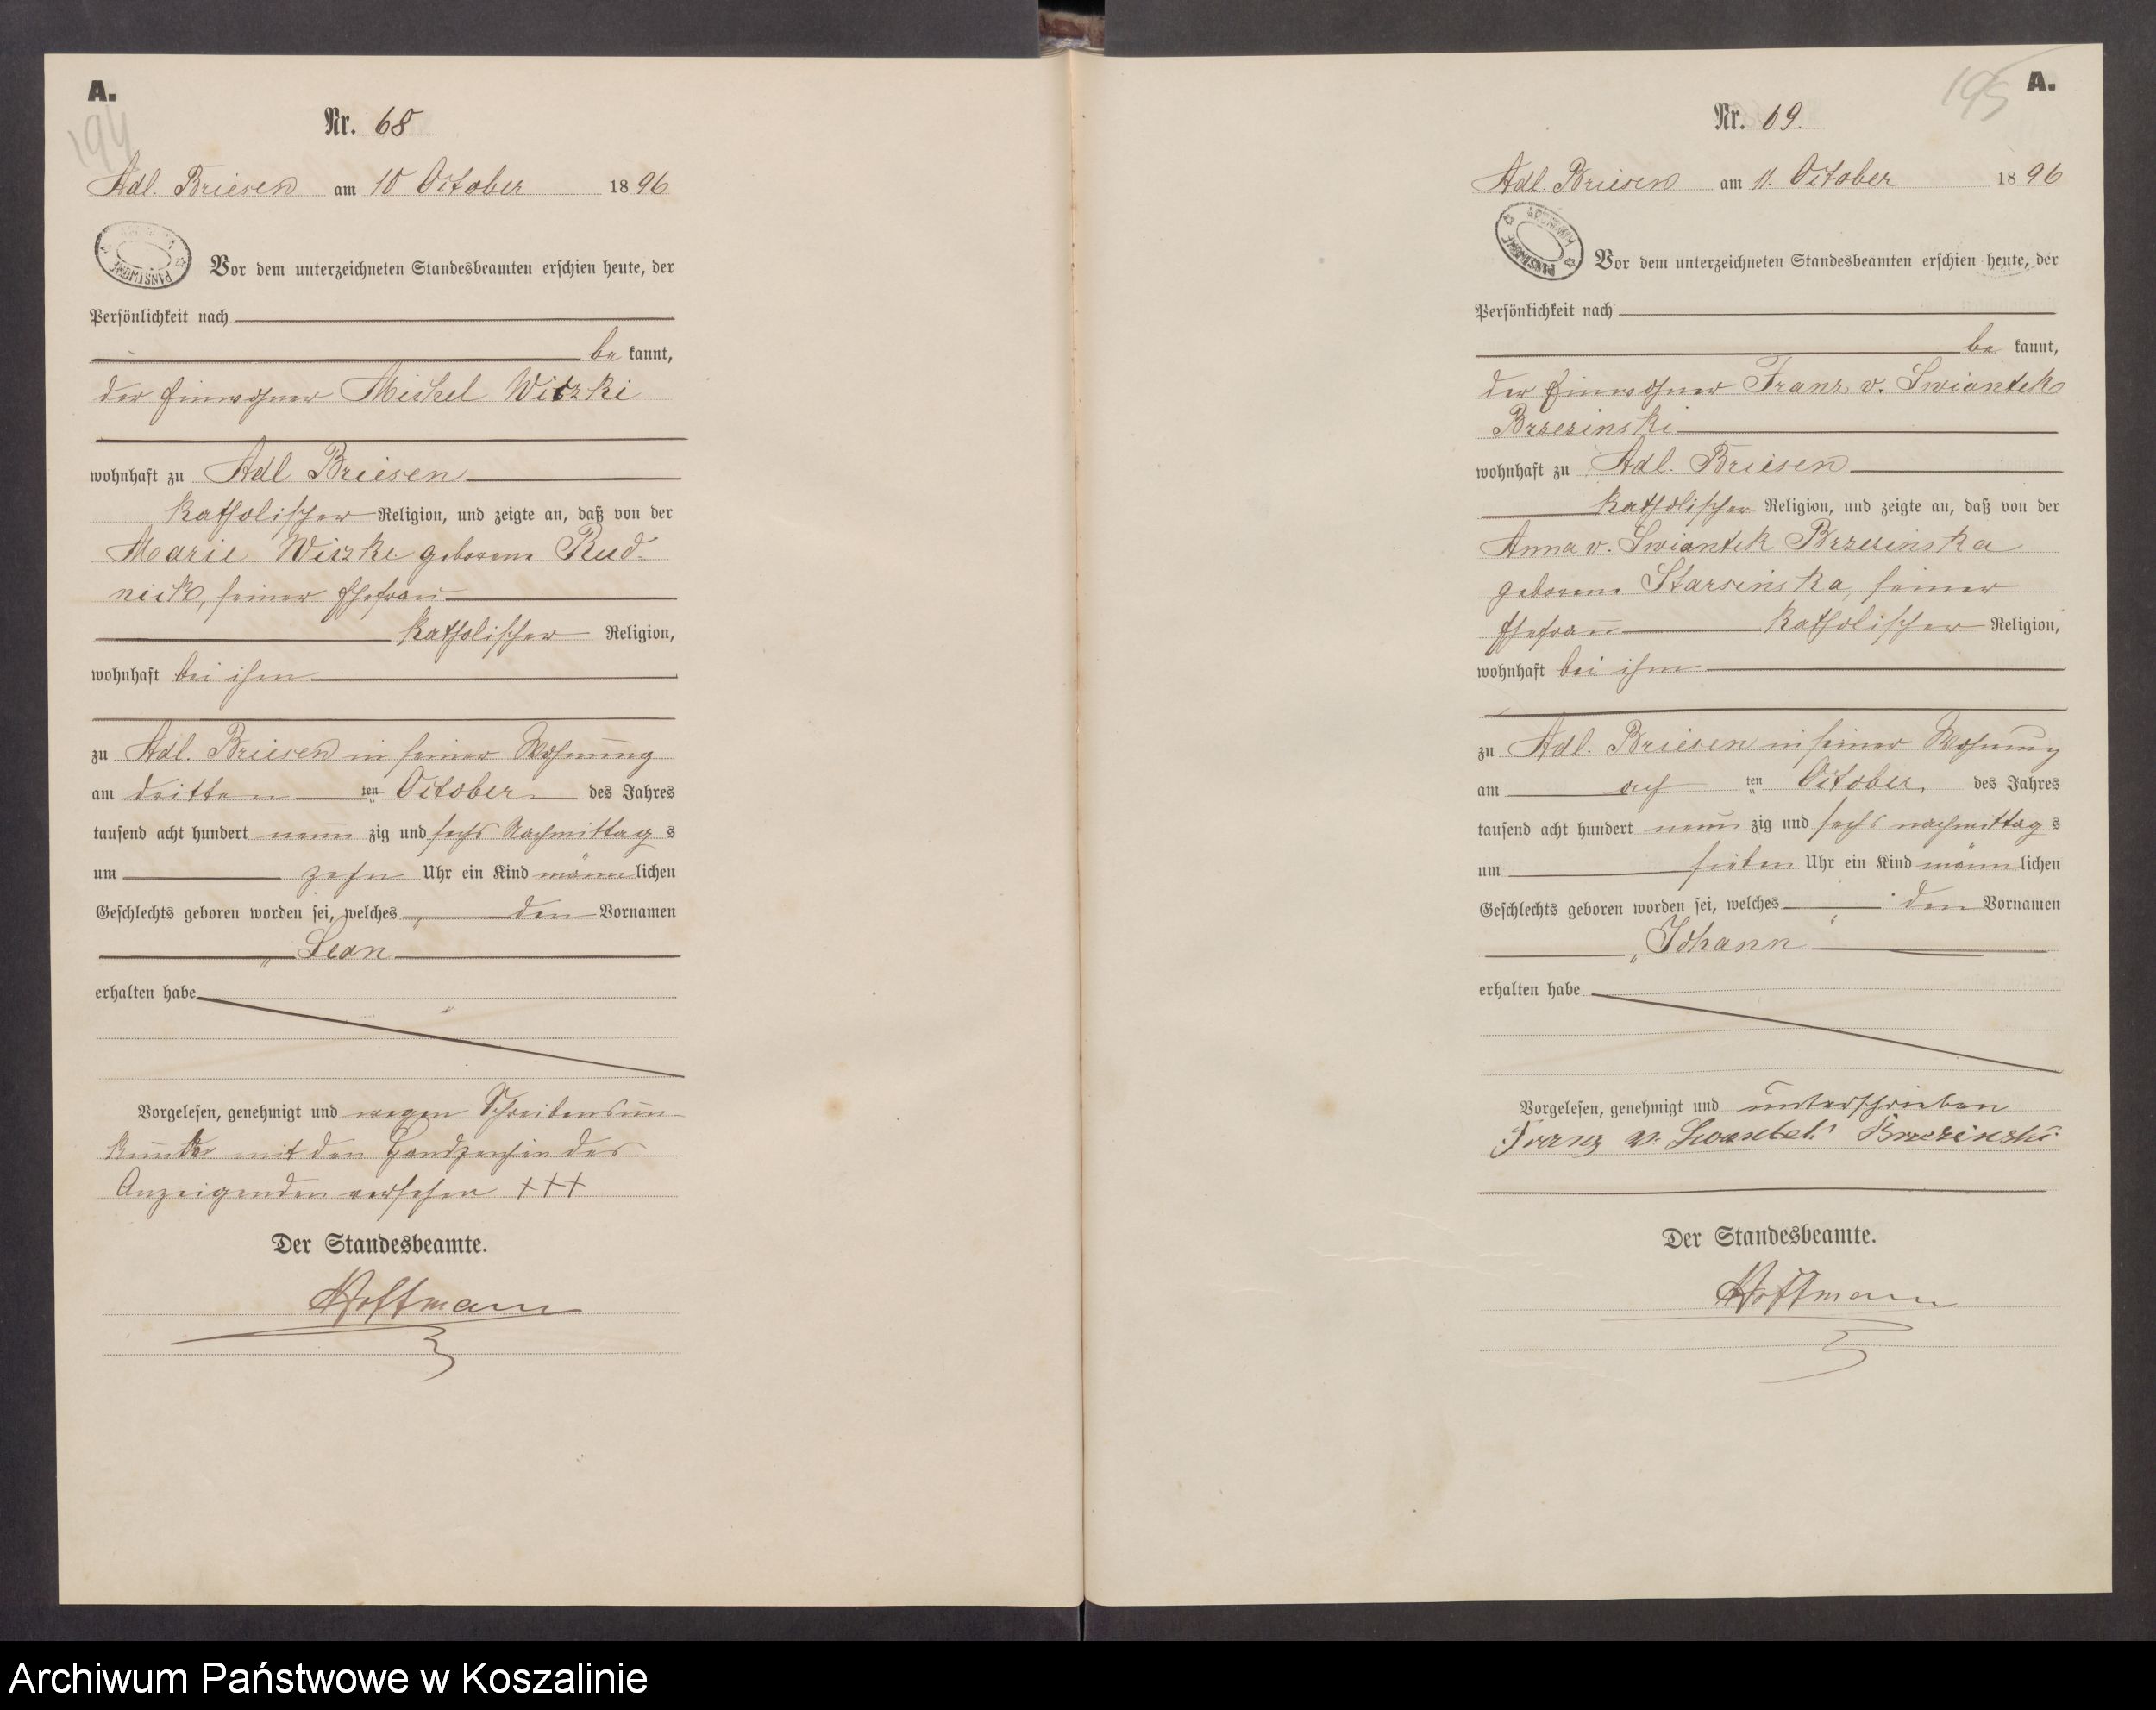 A.
194
Nr. 68
Adl. Briesen am 10 October 1896
Vor dem unterzeichneten Standesbeamten erschien heute, der
Persönlichkeit nach
be kannt,
der Einwohner Michel Wiszki
wohnhaft zu Adl Briesen
katholischer Religion, und zeigte an, daß von der
Marie Wiszke geborene Rud-
nick, seiner Ehefrau
katholischer Religion,
wohnhaft bei ihm
zu Adl. Briesen in seiner Wohnung
am dritten ten October des Jahres
tausend acht hundert neun zig und sechs Nachmittag s
um zehn Uhr ein Kind männ lichen
Geschlechts geboren worden sei, welches den Vornamen
Leon
erhalten habe
Vorgelesen, genehmigt und wegen Schreibensun-
kunde mit den Handzeichen des
Anzeigenden versehen +++
Der Standesbeamte.
Hoffmann
195
A.
Nr. 69.
Adl. Briesen am 11. October 1896
Vor dem unterzeichneten Standesbeamten erschien heute, der
Persönlichkeit nach
be kannt,
der Einwohner Franz v. Swiontek
Brzesinski
wohnhaft zu Adl. Briesen
katholischer Religion, und zeigte an, daß von der
Anna v. Swiontek Brzesinska
geborene Starsinska, seiner
Ehefrau katholischer Religion,
wohnhaft bei ihm
zu Adl. Briesen in seiner Wohnung
am ten October des Jahres
tausend acht hundert neun zig und sechs nachmittag s
um sieben Uhr ein Kind männ lichen
Geschlechts geboren worden sei, welches den Vornamen
Johann
erhalten habe
Vorgelesen, genehmigt und unterschrieben
Franz v. Brzezinski
Der Standesbeamte.
Hoffmann
Archiwum Państwowe w Koszalinie